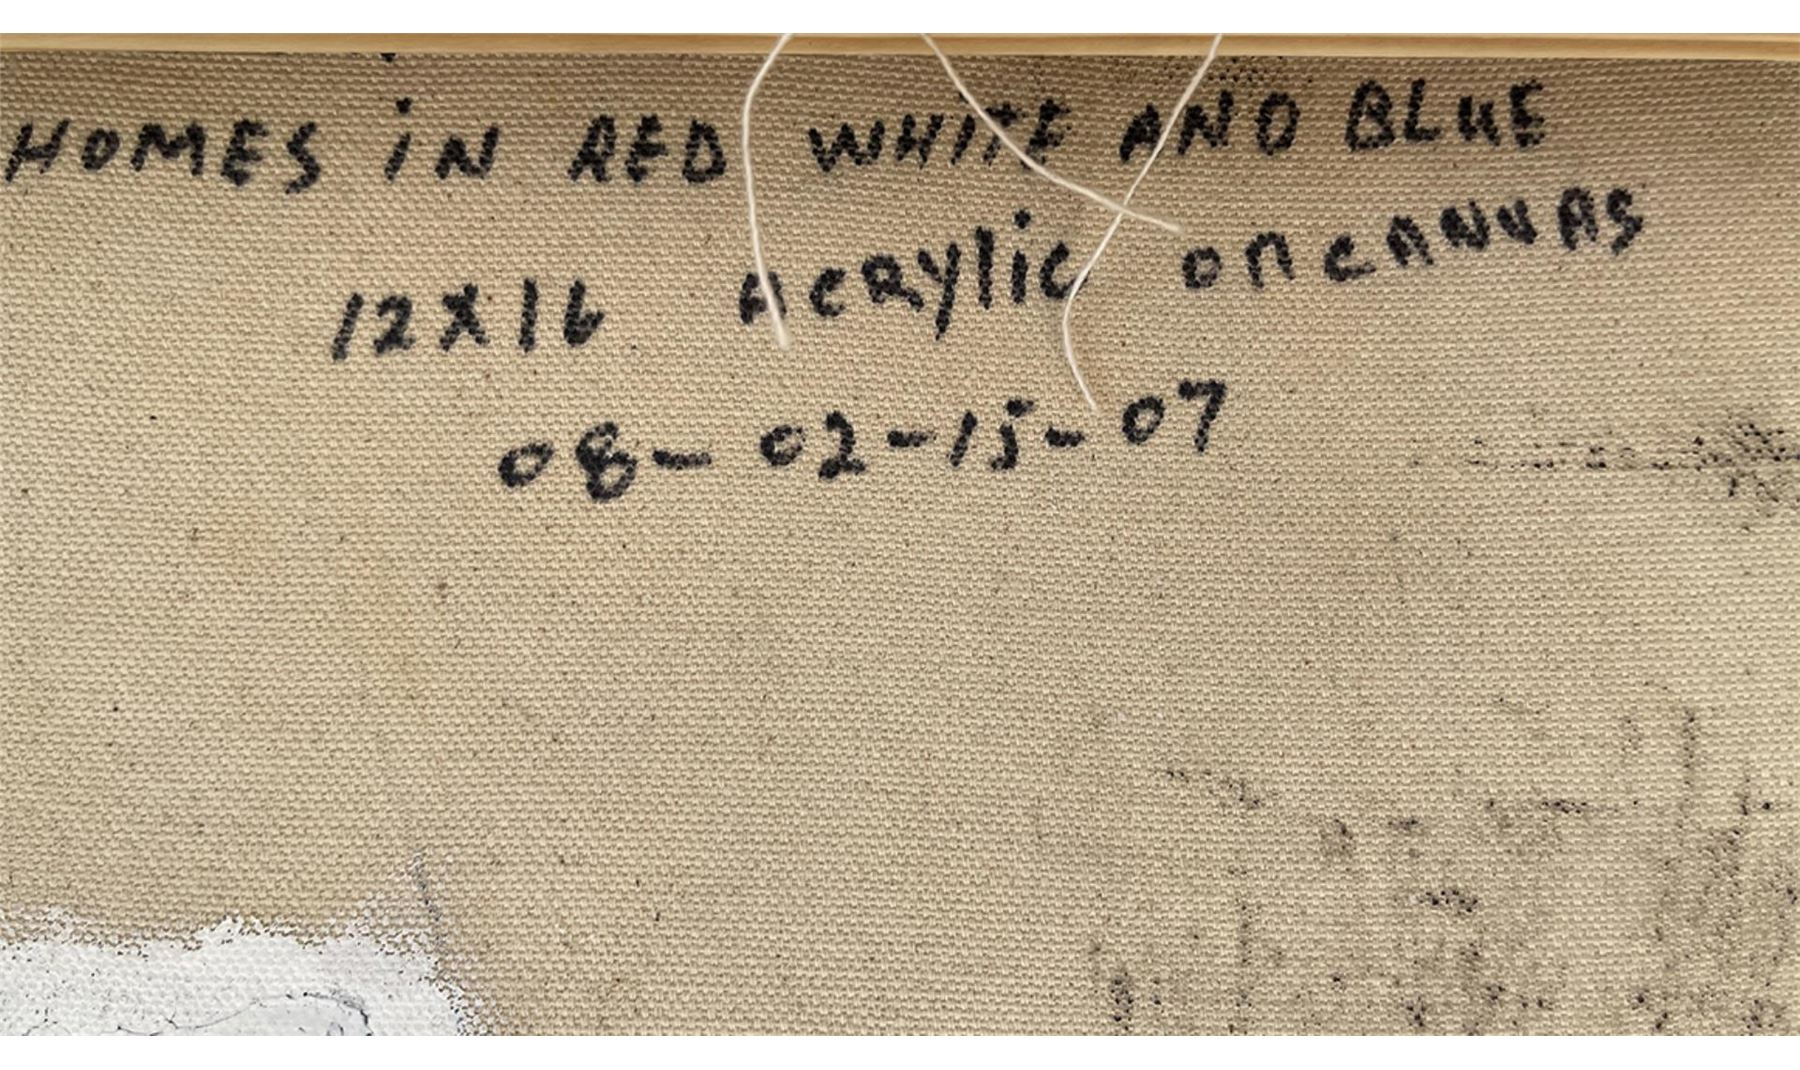 HOMES iN RED WHITE AND BLUE
12X16 ACRYlic ON CANVAS
08-02-15-07